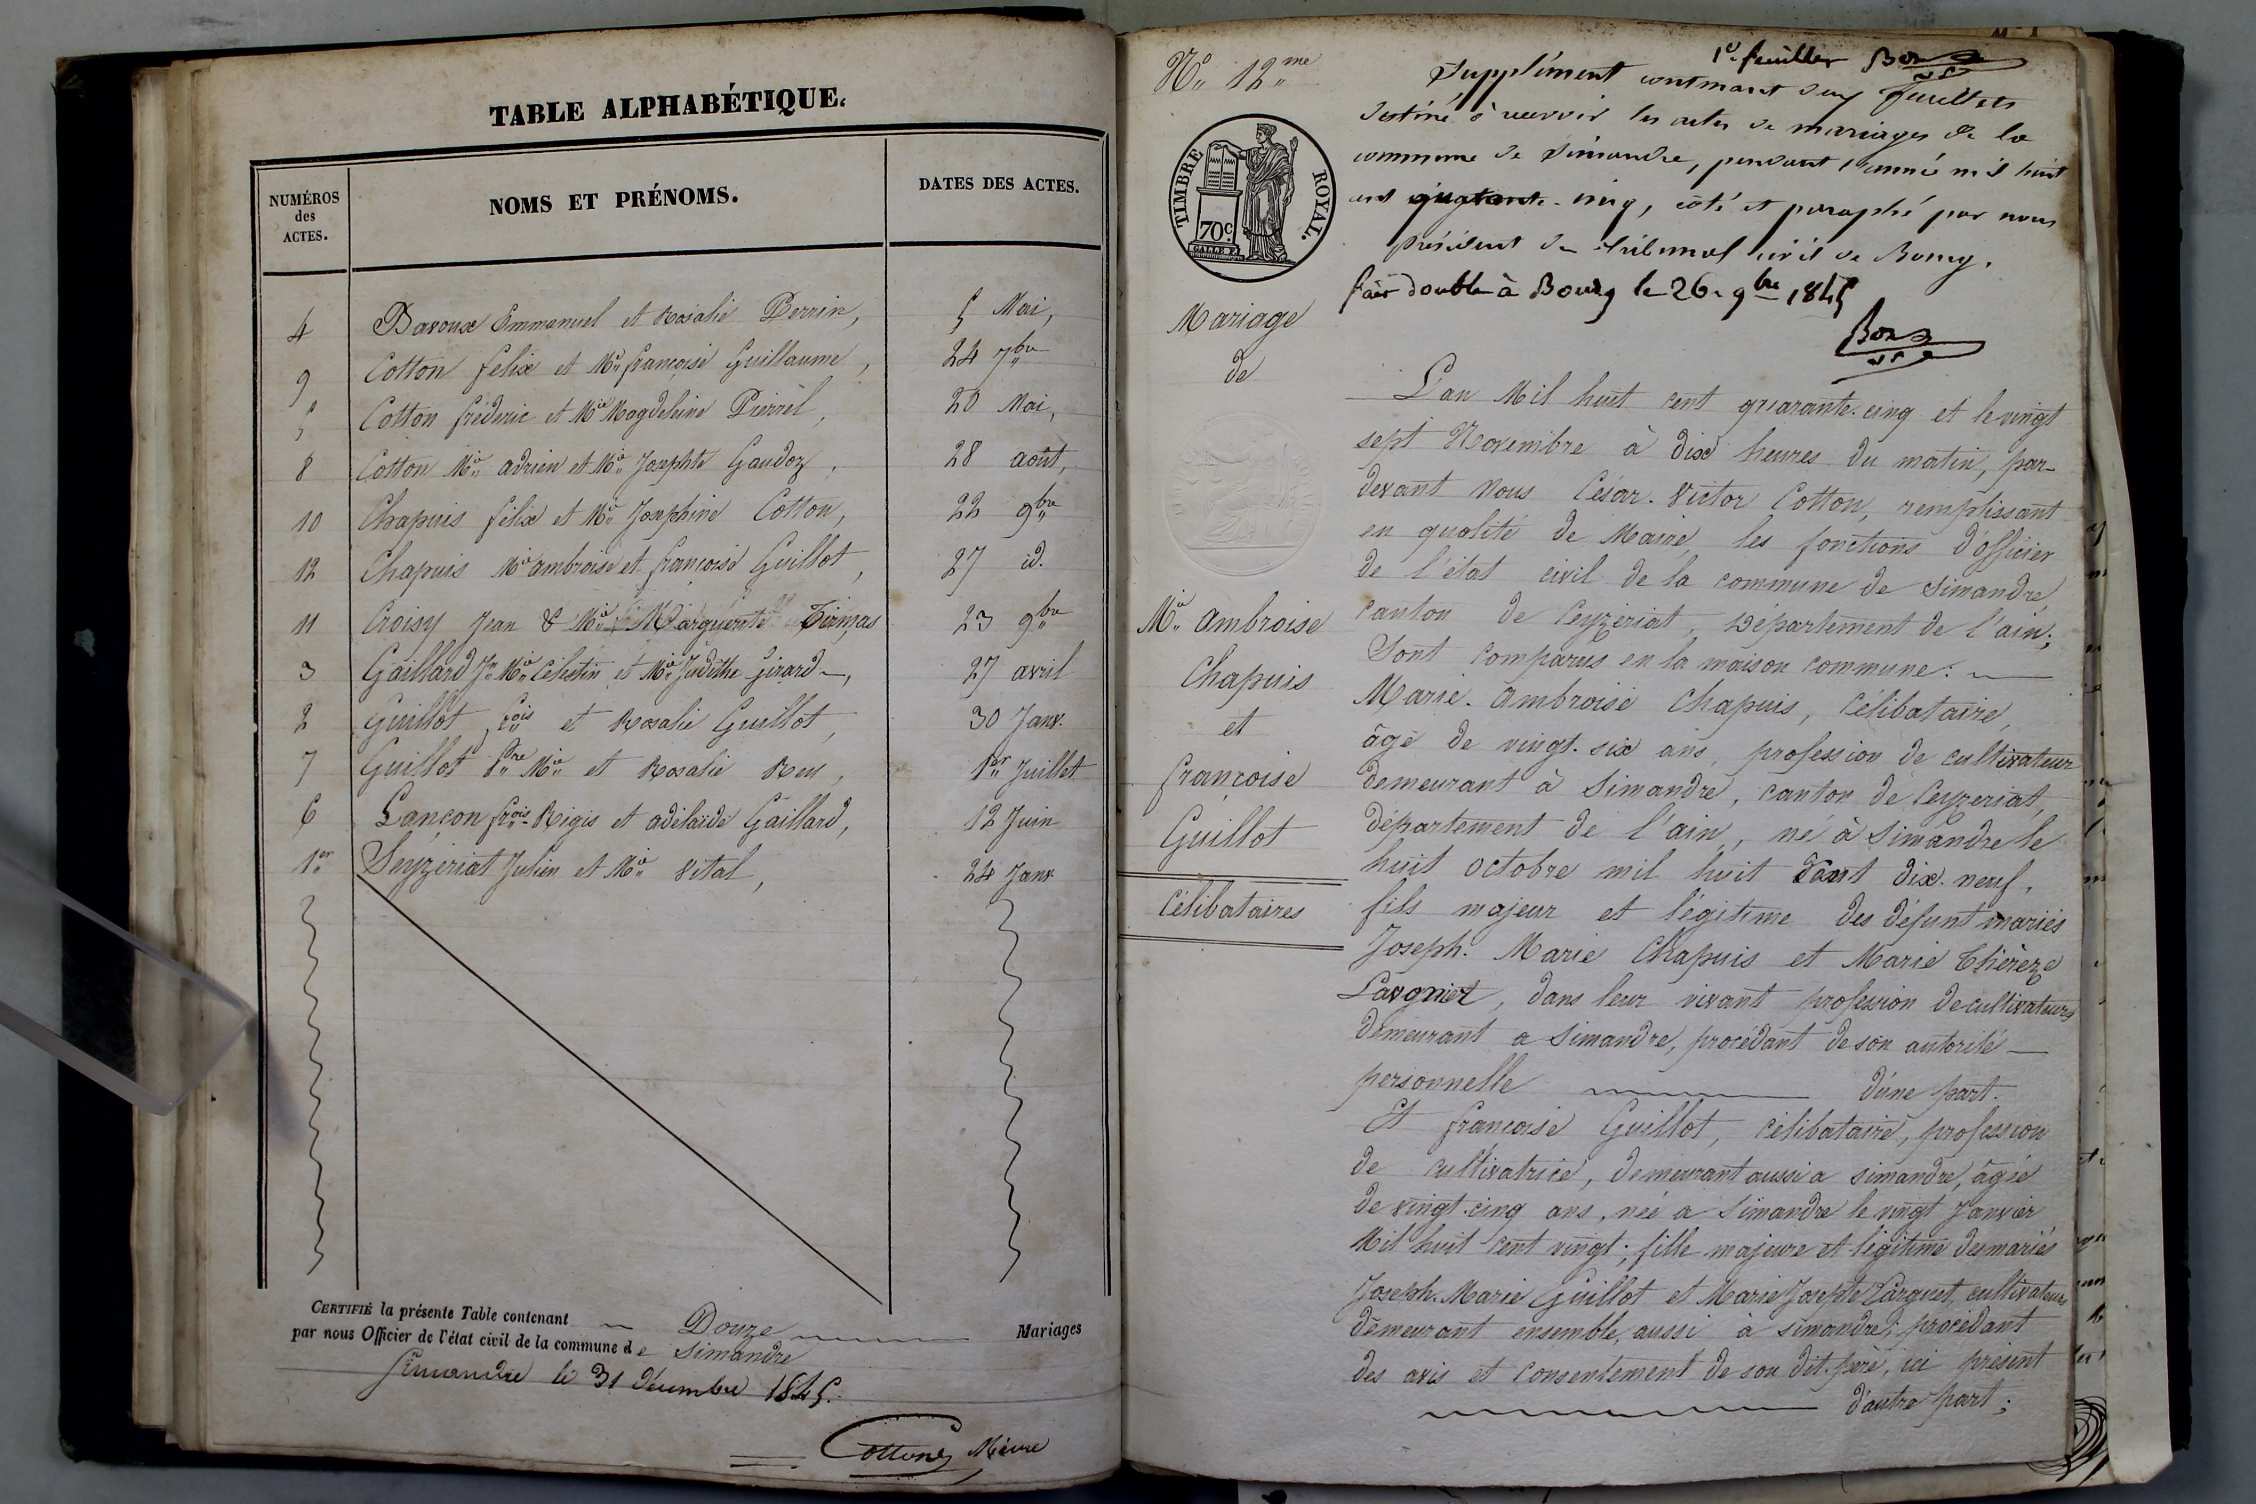 TABLE ALPHABÉTIQUE.
NUMÉROS des ACTES.
NOMS ET PRÉNOMS.
DATES DES ACTES.
4 Davoux Emmanuel et Rosalie Perrin, 5 Mai,
9 Cotton felix et Mie françoise Guillaume, 24 7bre
5 Cotton fréderic et Mie Magdeleine Pierrel, 20 Mai,
8 Cotton Mie adrien et Mie Josephte Gaudoz, 28 août,
10 Chapuis félix et Mie Josephine Cotton, 22 9bre
12 Chapuis Mie ambroise et françoise Guillot, 27 id.
11 Croisy Jean & Mie Marguerite Tirmas 23 9bre
3 Gaillard Jn Mie Célestin et Mie Judithe Girard, 27 avril
2 Guillot frois et Rosalie Guillot, 30 Janv.
7 Guillot Pre Mie et Rosalie Rey, 1er Juillet
6 Lançon frois Rigis et adélaïde Gaillard, 12 Juin
1er Seyzériat Julien et Mie Vital, 24 Janv
CERTIFIÉ la présente Table contenant Douze Mariages
par nous Officier de l'état civil de la commune de Simandre
Simandre le 31 décembre 1845.
Cotton Maire
No 12me
1er feuillet Bon
Supplément contenant deux feuillets
destiné à recevoir les actes de mariages de la
commune de Simandre, pendant l'année mil huit
cent quarante-cinq, coté et paraphé par nous
président du tribunal civil de Bourg.
fait double à Bourg le 26. 9bre 1845
Bon
TIMBRE ROYAL.
70c.
Mariage
de
Mie ambroise
Chapuis
et
françoise
Guillot
Célibataires
L'an Mil huit cent quarante-cinq et le vingt
sept Novembre à dix heures du matin, par-
devant Nous César-Victor Cotton, remplissant
en qualité de Maire, les fonctions d'officier
de l'état civil de la commune de Simandre
canton de Ceyzériat, Département de l'ain;
Sont comparus en la maison commune:
Marie-ambroise Chapuis, Célibataire,
âgé de vingt-six ans, profession de cultivateur
demeurant à Simandre, canton de Ceyzeriat,
département de l'ain, né à Simandre le
huit octobre mil huit cent dix-neuf,
fils majeur et légitime des défunt mariés
Joseph-Marie Chapuis et Marie Thérèze
Lavgniet, dans leur vivant profession de cultivateurs
demeurant a Simandre, procédant de son autorité
personnelle d'une part.
Et françoise Guillot, célibataire, profession
de cultivatrice, demeurant aussi a simandre, âgée
de vingt-cinq ans, née a Simandre le vingt Janvier
Mil huit cent vingt; fille majeure et légitime des mariés
Joseph-Marie Guillot et Marie Josephte Larguet, cultivateurs
demeurant ensemble, aussi à simandre; procédant
des avis et consentement de son dit-père, ici présent
d'autre part;